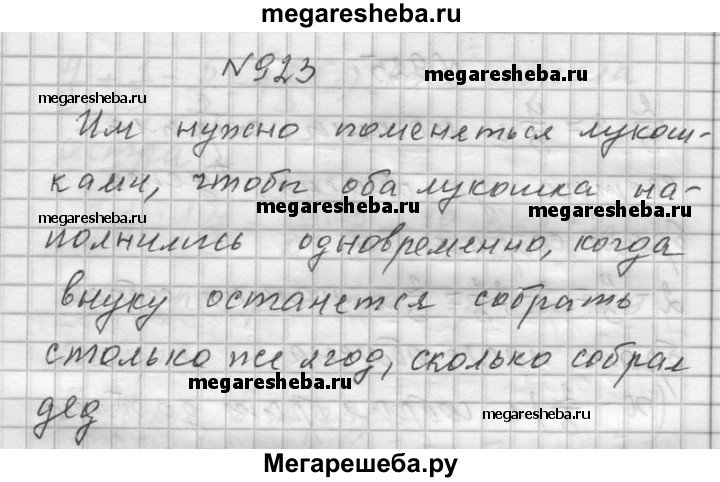 megaresheba.ru
№923
megaresheba.ru
megaresheba.ru
Им нужно поменяться лукош-
ками, чтобы оба лукошка на-
megaresheba.ru
megaresheba.ru
megaresheba.ru
полнились одновременно, когда
внуку останется собрать
столько же ягод, сколько собрал
megaresheba.ru
megaresheba.ru
дед
Мегарешеба.ру